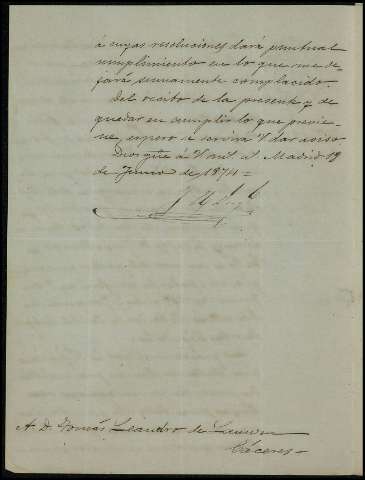 á cuyas resoluciones dará puntual
cumplimiento en lo que me de-
jará sumamente complacido.
Del recibo de la presente y de
quedar en cumplir lo que previe-
ne, espero se servirá V dar aviso
Dios gue á V mil as Madrid 19
de Junio de 1874=
A. D. Tomás Leandro de
Cáceres=